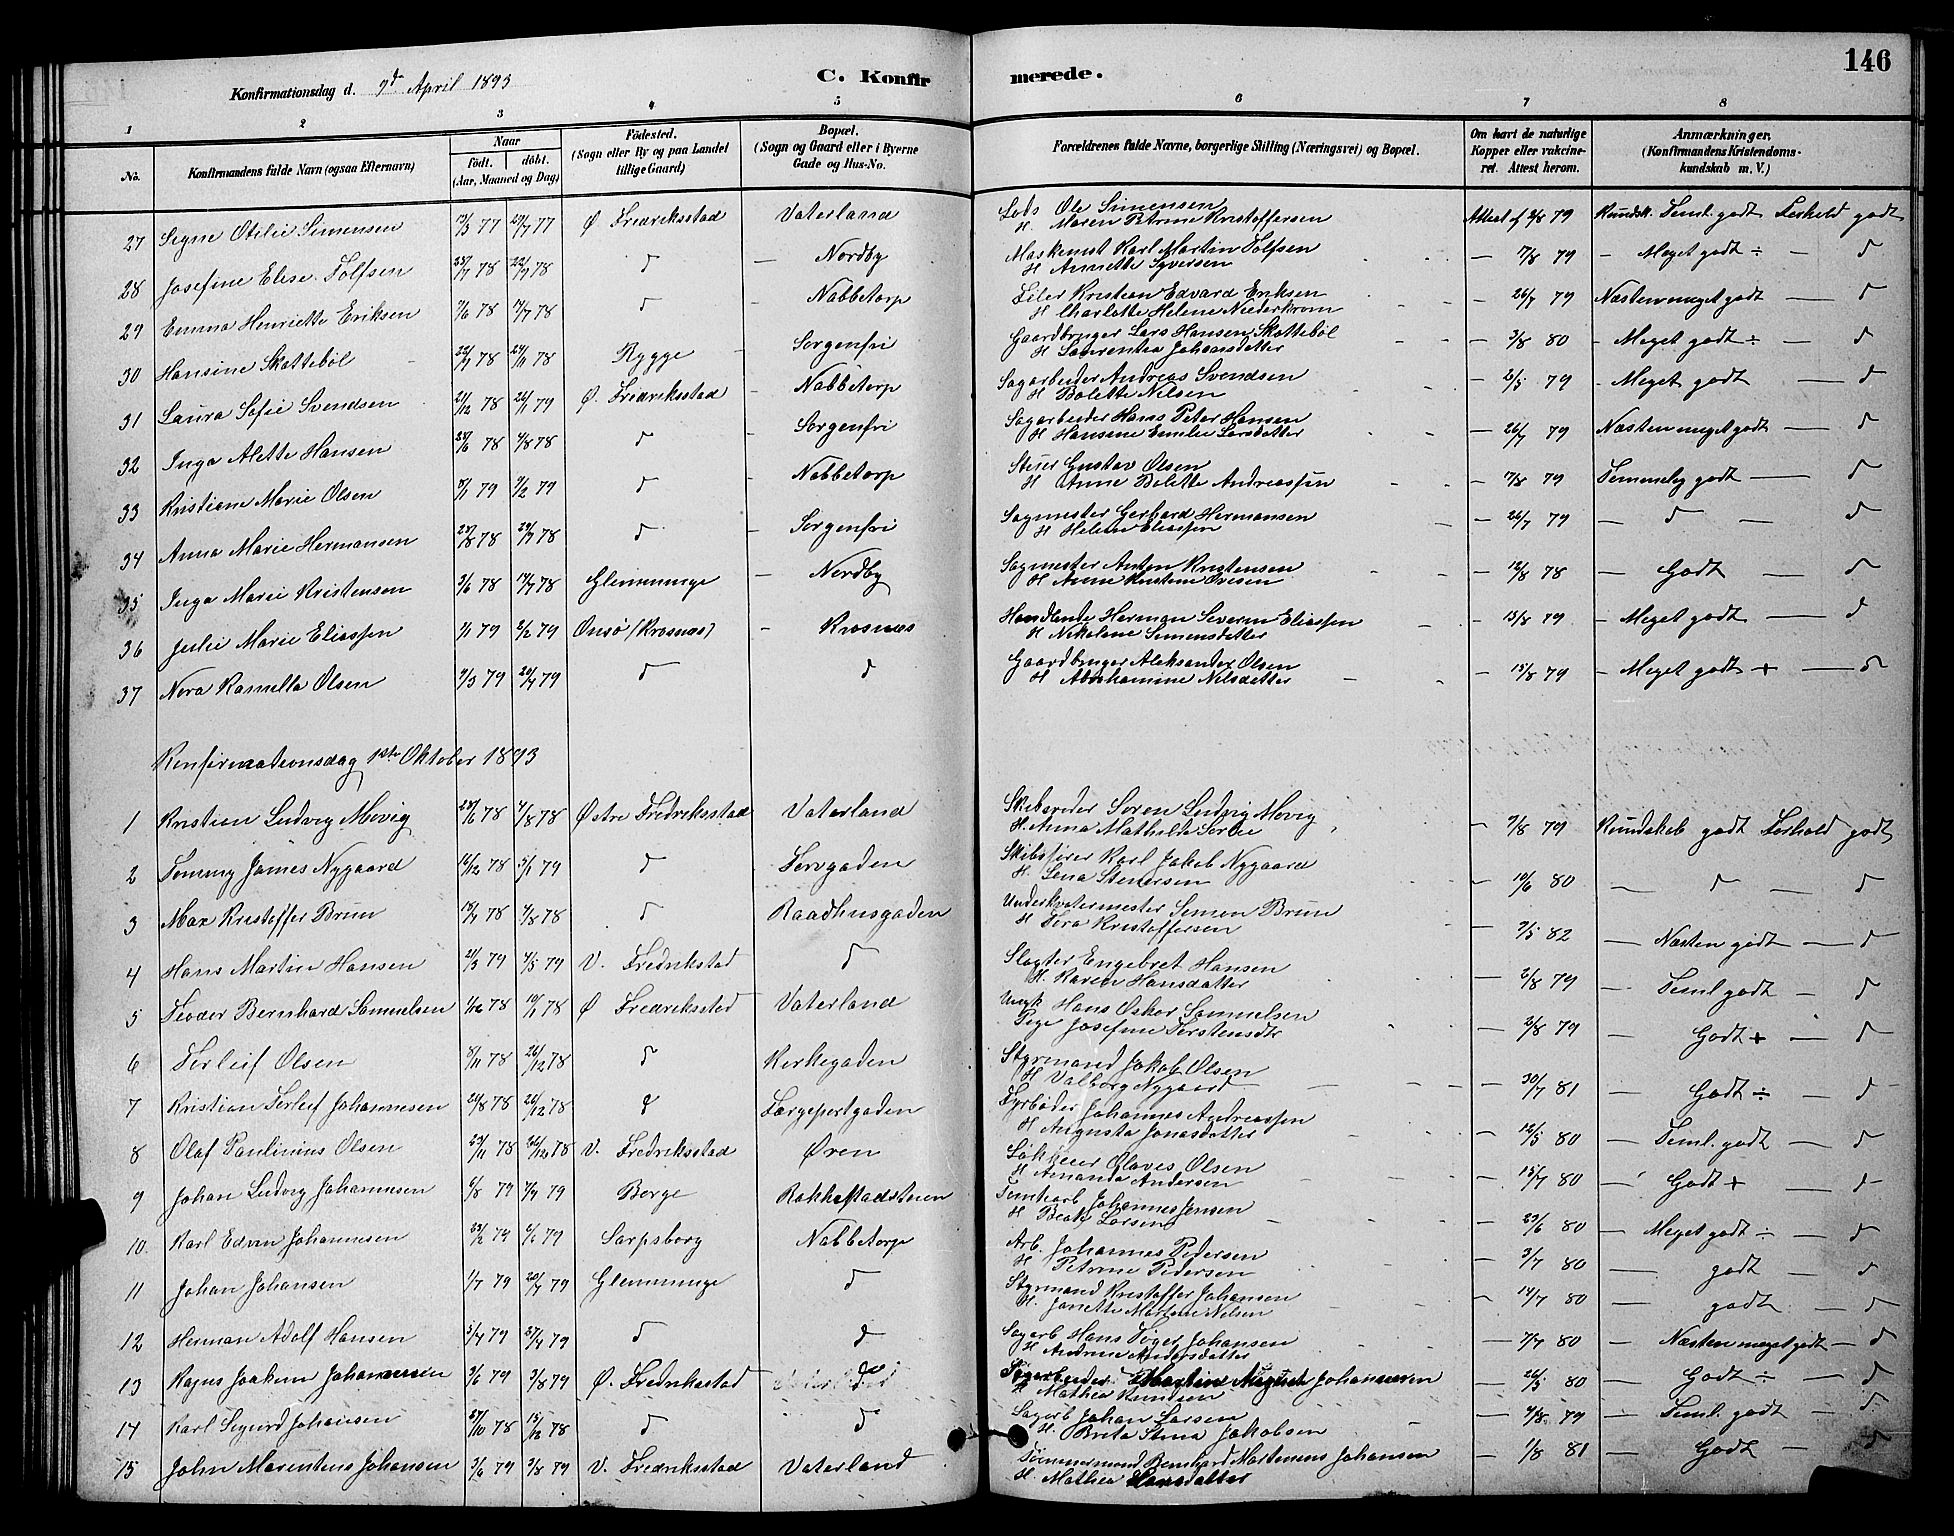 146
Konfirmationsdag d. 9de April 1893
C. Konfir merede.
1 2 3 4 5 6 7 8
No. Konfirmandens fulde Navn (ogsaa Efternavn) Naar født. døbt. (Aar, Maaned og Dag) Fødested. (Sogn eller By og paa Landet tillige Gaard) Bopæl. (Sogn og Gaard eller i Byerne Gade og Hus-No. Forældrenes fulde Navne, borgerlige Stilling (Næringsvei) og Bopæl. Om havt de naturlige Kopper eller vakcineret. Attest herom. Anmærkninger. (Konfirmandens Kristendomskundskab m. V.)
27 Signe Otilie Simensen 77 77 Ø Fredriksstad Vaterland Lods Ole Simensen
H. Maren Petrine Kristoffersen Attest af 2/8 79 Kundsk. Teml. godt Forhold godt
28 Josefine Elise Tolfsen 78 22/9 78 d — Nordby Maskinist Karl Martin Tolfsen
H Annette Syversen — 7/8 79 — Meget godt ÷ — d
29 Emma Henriette Eriksen 7/6 78 14/7 78 d — Nabbetorp Kristian Edvard Eriksen
H Charlotte Helene Niederkrom — 26/7 79 Næsten meget godt — d
30 Hansine Skattebøl 78 24/11 78 Rygge — Sorgenfri Gaardbruger Lars Hansen Skattebøl
H Laurentia Johansdatter — 3/8 80 — Meget godt ÷ — d
31 Laura Sofie Svendsen 21/12 78 26/1 79 Ø. Fredriksstad — Nabbetorp Sagarbeider Andreas Svendsen
H Bolette Nilsen — 2/5 79 — Meget godt — d
32 Inga Alette Hansen 78 4/8 78 d — Sorgenfri Sagarbeider Hans Peter Hansen
H Hansine Emilie Larsdatter — 26/7 79 Næsten meget godt — d
33 Kristiane Marie Olsen 5/1 79 9/2 79 d — Nabbetorp Steier Gustav Olsen
H Anne Bolette Andreassen — 17/8 79 Temmelig godt — d
34 Anna Marie Hermansen 28/8 78 29/9 78 d — Sorgenfri Sagmester Gerhard Hermansen
H Helene Eliassen — 26/7 79 — d — d
35 Inga Marie Kristensen 3/6 78 14/7 78 Glemminge — Nordby Sagmester Anton Kristensen
H Anne Kristine Ovesen — 12/8 78 — Godt — d
36 Julie Marie Eliassen 1/1 79 2/2 79 Onsø (Krosnæs) — Krosnæs Handlende Herman Severin Eliassen
H Nikoline Simensdatter — 15/8 79 — Meget godt — d
37 Nora Kamilla Olsen 9/3 79 20/4 79 d d Gaardbruger Aleksander Olsen
H Abrahamine Nilsdatter — 15/8 79 — Meget godt + — d
Konfirmationsdag 1ste Oktober 1893
1 Kristian Ludvig Movig 23/6 78 4/8 78 Østre Fredriksstad Vaterland Skibsreder Soren Ludvig Movig
H. Anna Mathilde Sorlie — 7/8 79 Kundskab godt Forhold godt
2 Tommy James Nygaard 16/12 78 5/1 79 d Torvgaden Skibsfører Karl Jakob Nygaard
H. Lena Stenersen — 10/6 80 — d — d
3 Max Kristoffer Brun 78 4/8 78 d Raadhusgaden Underkvatermester Simon Brun
H Tora Kristoffersen — 9/5 82 — Næsten godt — d
4 Hans Martin Hansen 21/3 79 4/5 79 V. Fredrikstad d Slagter Engebret Hansen
H. Karen Hansdatter — 2/8 79 — Teml godt — d
5 Teodor Bernhard Samuelsen 78 78 Ø Fredriksstad Vaterland Ungk Hans Oskar Samuelsen
Pige Josefine Torstensdt — 2/8 79 — Godt + — d
6 Torleif Olsen 8/11 78 26/12 78 d Kirkegaden Styrmand Jakob Olsen
H Valborg Nygaard — 30/7 81 — Godt ÷ — d
7 Kristian Torleif Johannesen 24/8 78 26/12 78 d Færgeportgaden Fyrbøder Johannes Andreassen
H Augusta Jonasdatter — 12/5 80 — Teml. godt — d
8 Olaf Paulinius Olsen 23/11 78 26/12 78 V. Fredriksstad Øren Olaves Olsen
H Amanda Andersen — 15/7 80 — Godt + — d
9 Johan Ludvig Johannesen 6/8 79 79 Borge Rakkestadsveien Johannes Jensen
H Beate Larsen — 23/6 80 — Meget godt ÷ — d
10. Karl Edvin Johannesen 23/2 79 79 Sarpsborg Nabbetorp Arb. Johannes Pedersen
H Petrine Pedersen — 3/7 80 — godt — d
11 Johan Johansen 1/7 79 20/7 79 Glemminge d Styrmand Kristoffer Johansen
H. Janette Martine Nilsen — 14/7 80 — godt — d
12 Herman Adolf Hansen 5/4 79 27/4 79 d d Sagarb Hans Johansen
H Andrine Andersdatter — 7/7 80 — Næsten meget godt — d
13 Joakim Johannesen 3/6 79 3/8 79 Ø. Fredrikstad do August Johannesen
H Mathea Knudsen — 26/5 80 — Godt ÷ — d
14 Karl Sigurd Johansen 27/10 78 15/12 78 d d Sagarb Johan Larsen
H. Brita Stina Jakobsen — 4/8 79 — Teml. godt — d
15 John Marentius Johansen 3/6 79 3/8 79 V. Fredriksstad Vaterland Tømmermand Bernhard Martenius Johansen
H. Mathea Hansdatter — 1/8 81 — Godt — d